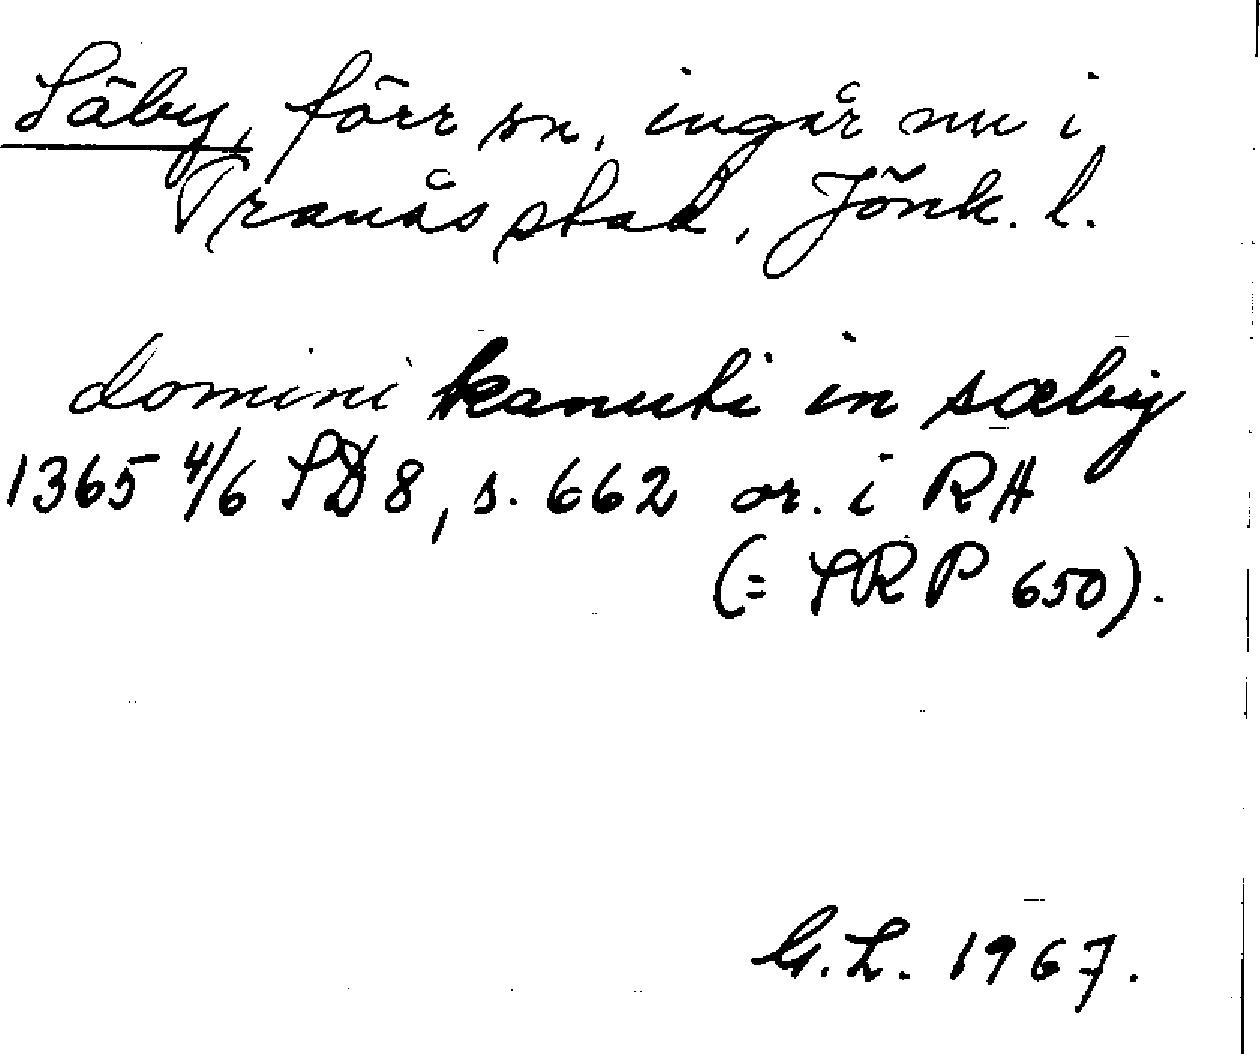 Säby, förr sn, ingår nu i
Tranås stad, Jönk. l.
domini kanuti in sæby
1365 4/6 SD 8, s. 662 or. i RA
(= SRP 650).
G.L. 1967.